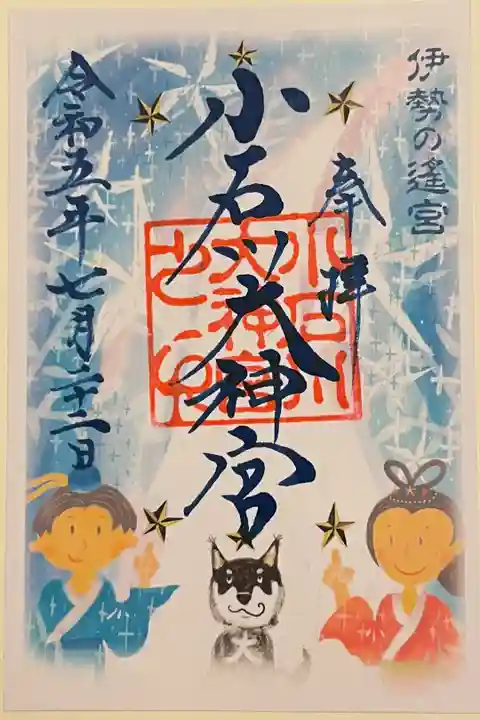 伊勢の遙宮
奉拝
小石川大神宮
小石川
大神宮
之印
令和五年七月二十二日
大